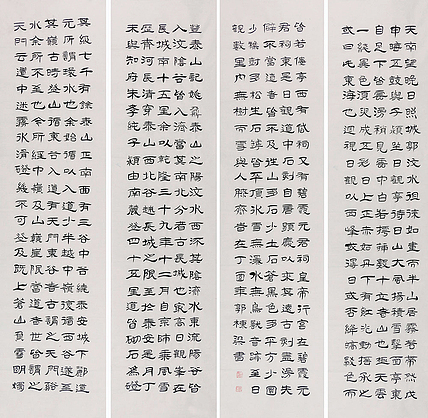 登泰山記姚鼐泰山之陽汶水西流其陰濟水東流陽谷皆
入汶陰谷皆入濟當其南北分者古長城也最高日觀峯在
長城南十五里余以乾隆三十九年十二月自京師乘風雪歷
齊河長清穿泰山西北谷越長城之限至於泰安是月丁
未與知府朱孝純子潁由南麓登四十五里道皆砌石為磴
其級七千有餘泰山正南面有三谷中谷繞泰安城下酈道
元所謂環水也余始循以入道少半越中嶺復循西谷遂至
其巔古時登山循東谷入道有天門東谷者古謂之天門谿
水余所不至也今所經中嶺及山巔崖限當道者世皆謂之
天門云道中迷霧冰滑磴幾不可登及既上蒼山負雪明燭
天南望晚日照城郭汶水徂徠如畫而半山居霧若帶然戊
申晦五鼓與子潁坐日觀亭待日出大風揚積雪擊面亭東
自足下皆雲漫稍見雲中白若樗蒱數十立者山也極天雲
一線異色須臾成五采日上正赤如丹下有紅光動搖承之
或曰此東海也迴視日觀以西峰或得日或否絳皜駁色而
皆若僂亭西有岱祠又有碧霞元君祠皇帝行宮在碧霞元
君祠東是日觀道中石刻自唐顯慶以來其遠古刻盡漫失
僻不當道者皆不及往山多石少土石蒼黑色多平方少圜
少雜樹多松生石罅皆平頂冰雪無瀑水無鳥獸音跡至日
觀數里內無樹而雪與人膝齊郭棟梁書